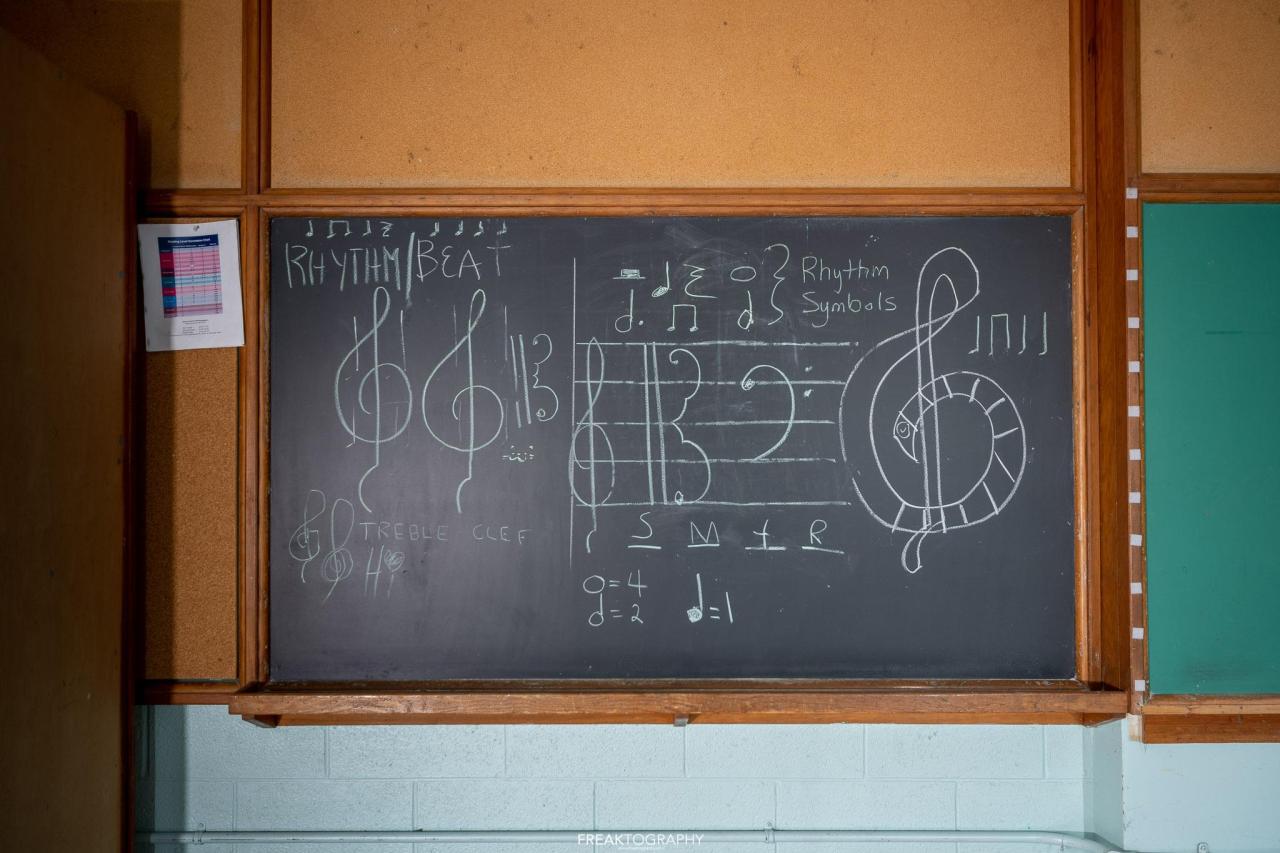 RHYTHM/BEAT
Rhythm
Symbols
TREBLE CLEF
Hi
S M t R
= 4
= 2
= 1
FREAKTOGRAPHY